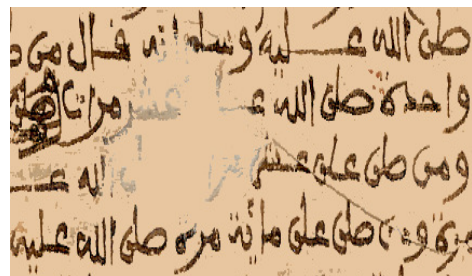 صلى الله عليه وسلم انه قال من
واحدة صلى الله عشر مرات
ومن صلى على عشر الله
مرة ومن صلى على ماية مرة صلى الله عليه